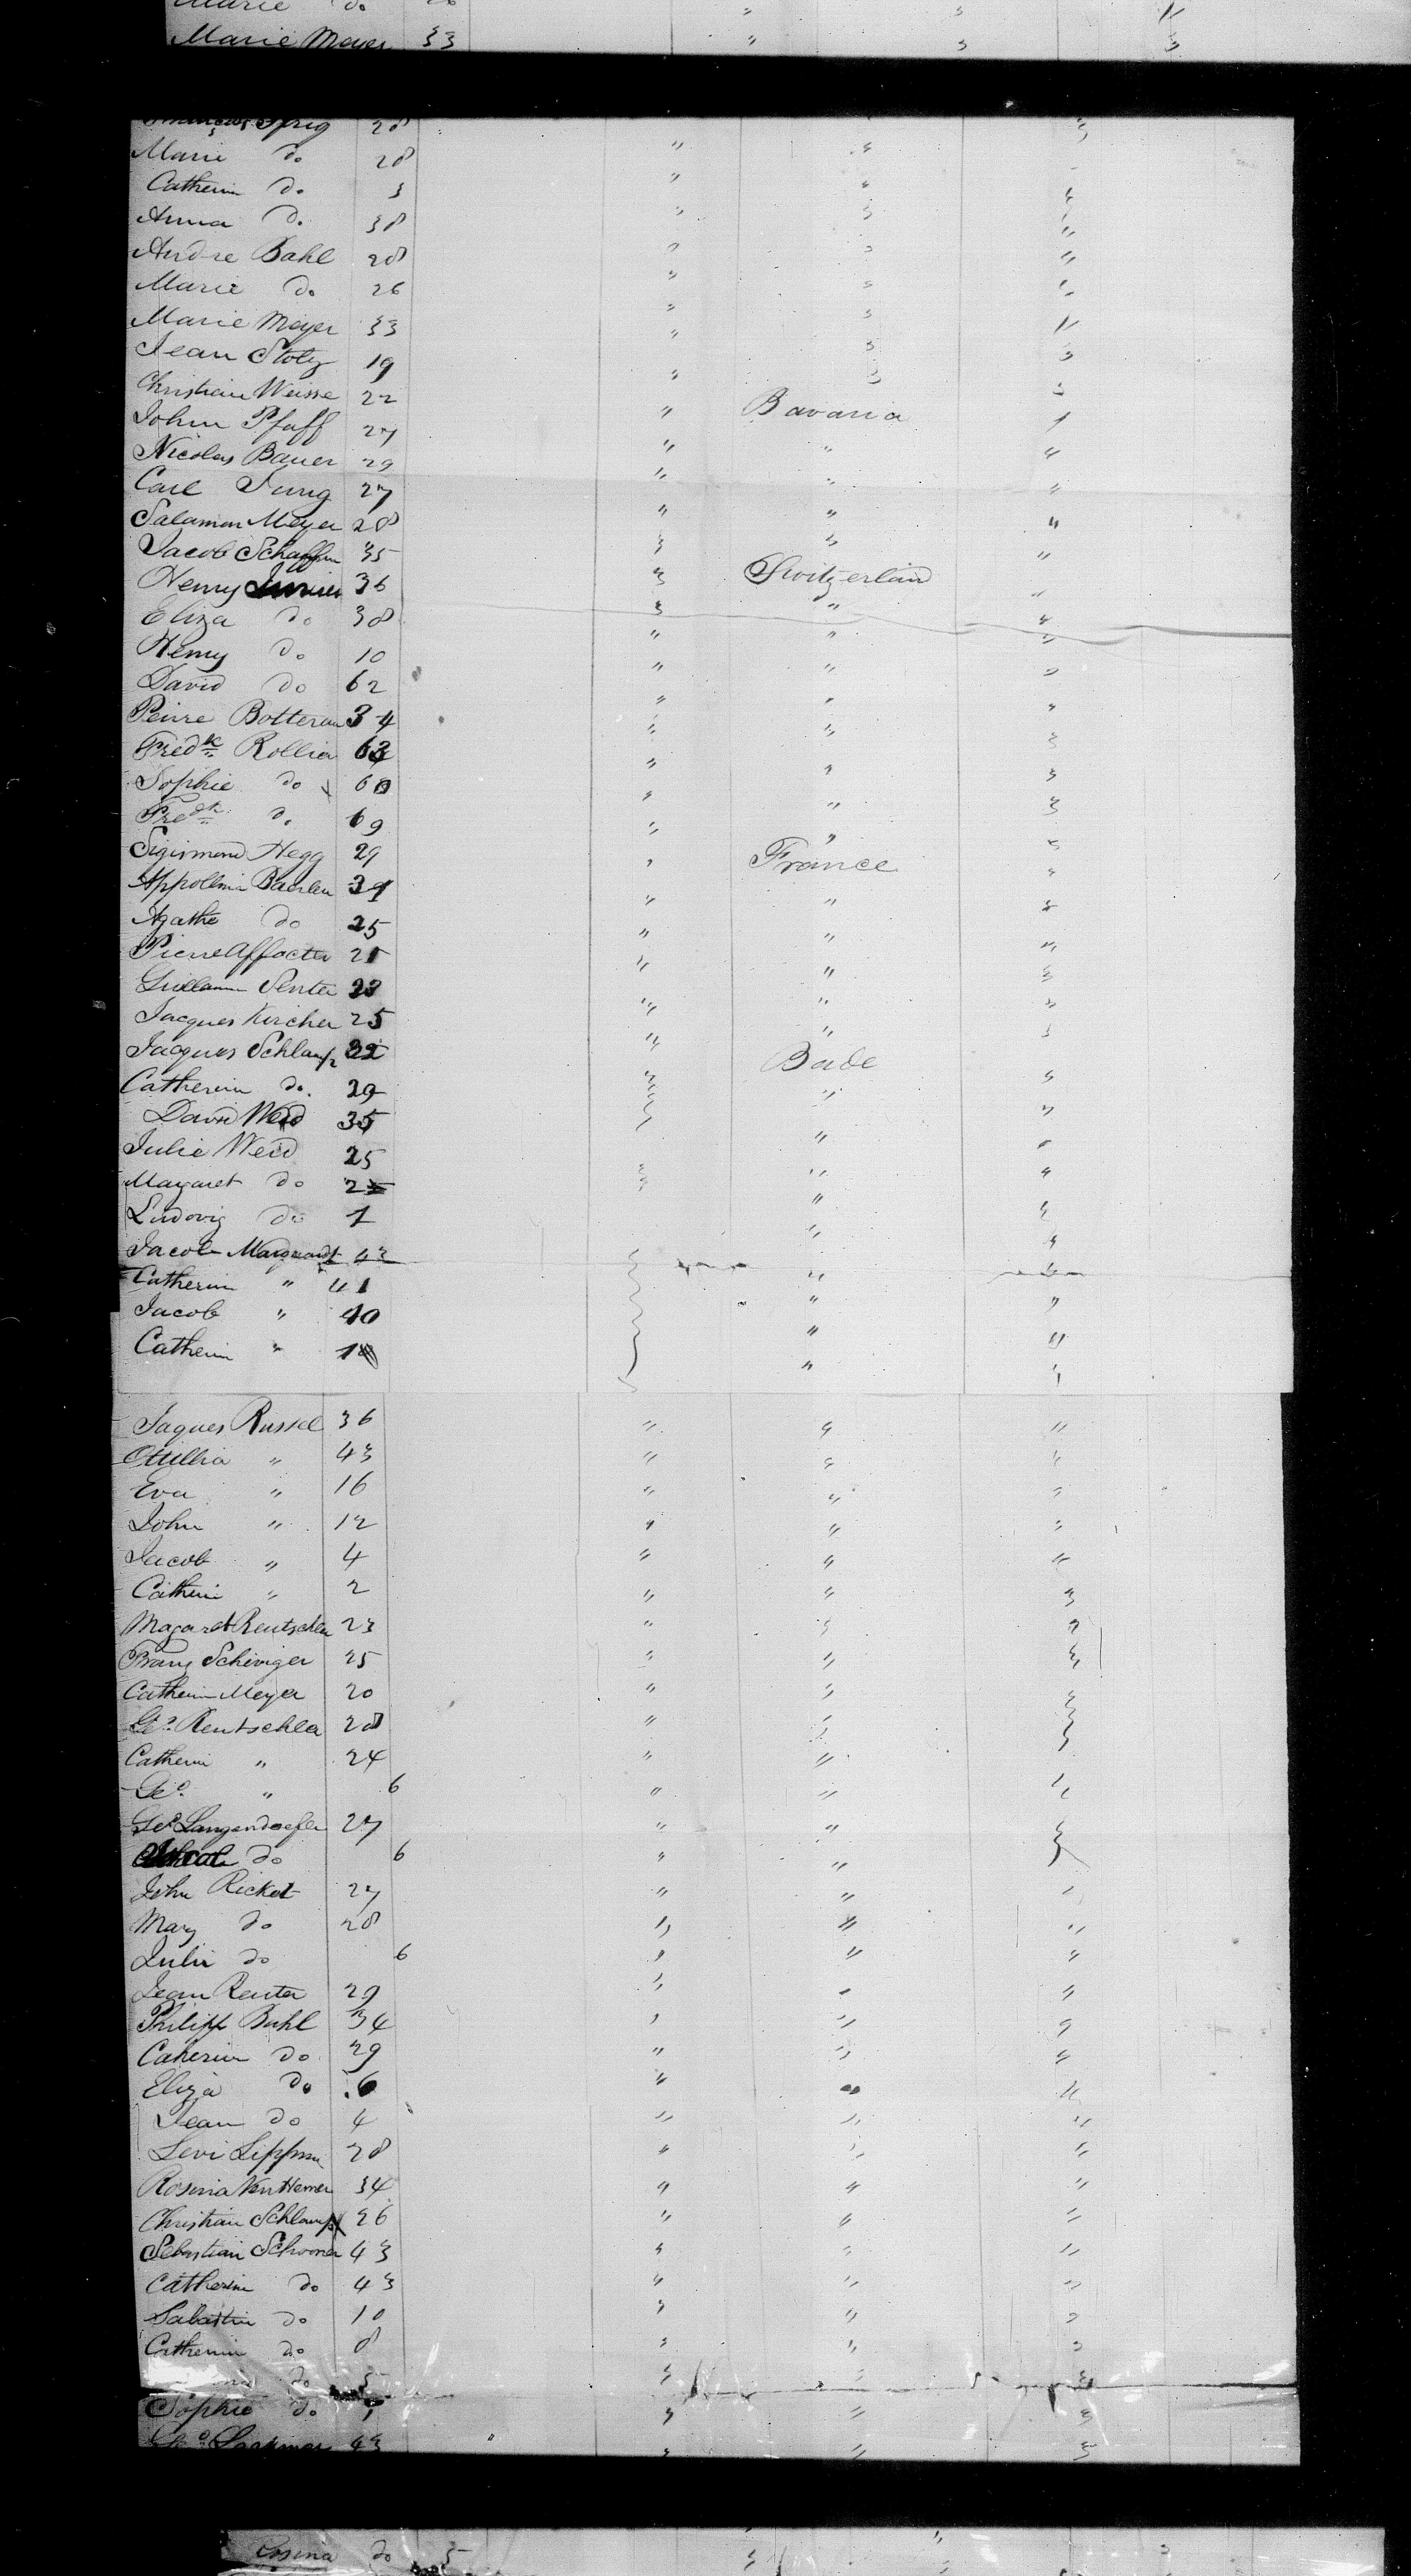 Marie do
Marie Meyer 33 " " "
Sprig 28 "
Marie do 28 " "
Catherin do 3 " " "
Anna do 38 " " "
Andre Bahl 28 " " "
Marie do 26 " " "
Marie Meyer 33 " " "
Jean Stolz 19 " " "
Christian Weisse 22 " " "
John Pfaff 27 " Bavaria "
Nicolas Bauer 29 " " "
Carl Jung 27 " " "
Salamon Meyer 28 " " "
Jacob Schaffn 35 " " "
Henry 36 " Switzerland "
Eliza do 38 " " "
Henry do 10 " " "
David do 62 " " "
Peirre Botteran 34 " " "
Fredk Rollier " " "
Sophie do 60 " " "
Fredk do 69 " " "
Sigismond Hegg 29 " France "
Appollina 31 " " "
Agathe do 25 " " "
Pierre Affocter 21 " " "
Guillaum Senter " " "
Jacques Kircher 25 " " "
Jacques Schlaup 32 " Bade "
Catherin do 29 " " "
David Weid 35 " " "
Julie Weid 25 " " "
Margaret do " " "
Ludovig do 1 " "
Jacob Marquardt 43 " "
Catherin " 41 " "
Jacob " 10 " "
Catherin " " "
Jaques Russel 36 " " "
Ottillia " 43 " " "
Eva " 16 " " "
John " 12 " " "
Jacob " 4 " " "
Catherin " 2 " " "
Magaret Rentschler 23 " " "
Franz Schiviger 25 " " "
Catherin Meyer 20 " " "
Geo. Rentschler 28 " " "
Catherin " 24 " " "
Geo. " 6 " " "
Geo. Langendoefer 27 " " "
do 6 " " "
John Ricket 27 " " "
Mary do 28 " " "
Julie do 6 " " "
Jean Renter 29 " " "
Philipp Buhl 34 " " "
Caherin do 29 " " "
Eliza do 6 " " "
Jean do 4 " " "
Levi Lippman 28 " " "
Rosina 34 " " "
Christian Schlaup 26 " " "
Sebastian Schooner 43 " " "
Catherin do 43 " " "
Sabastin do 10 " " "
Catherin do 8 " " "
do 5 " " "
Sophie do " " "
Geo. 43 " " "
osina do 5 " "